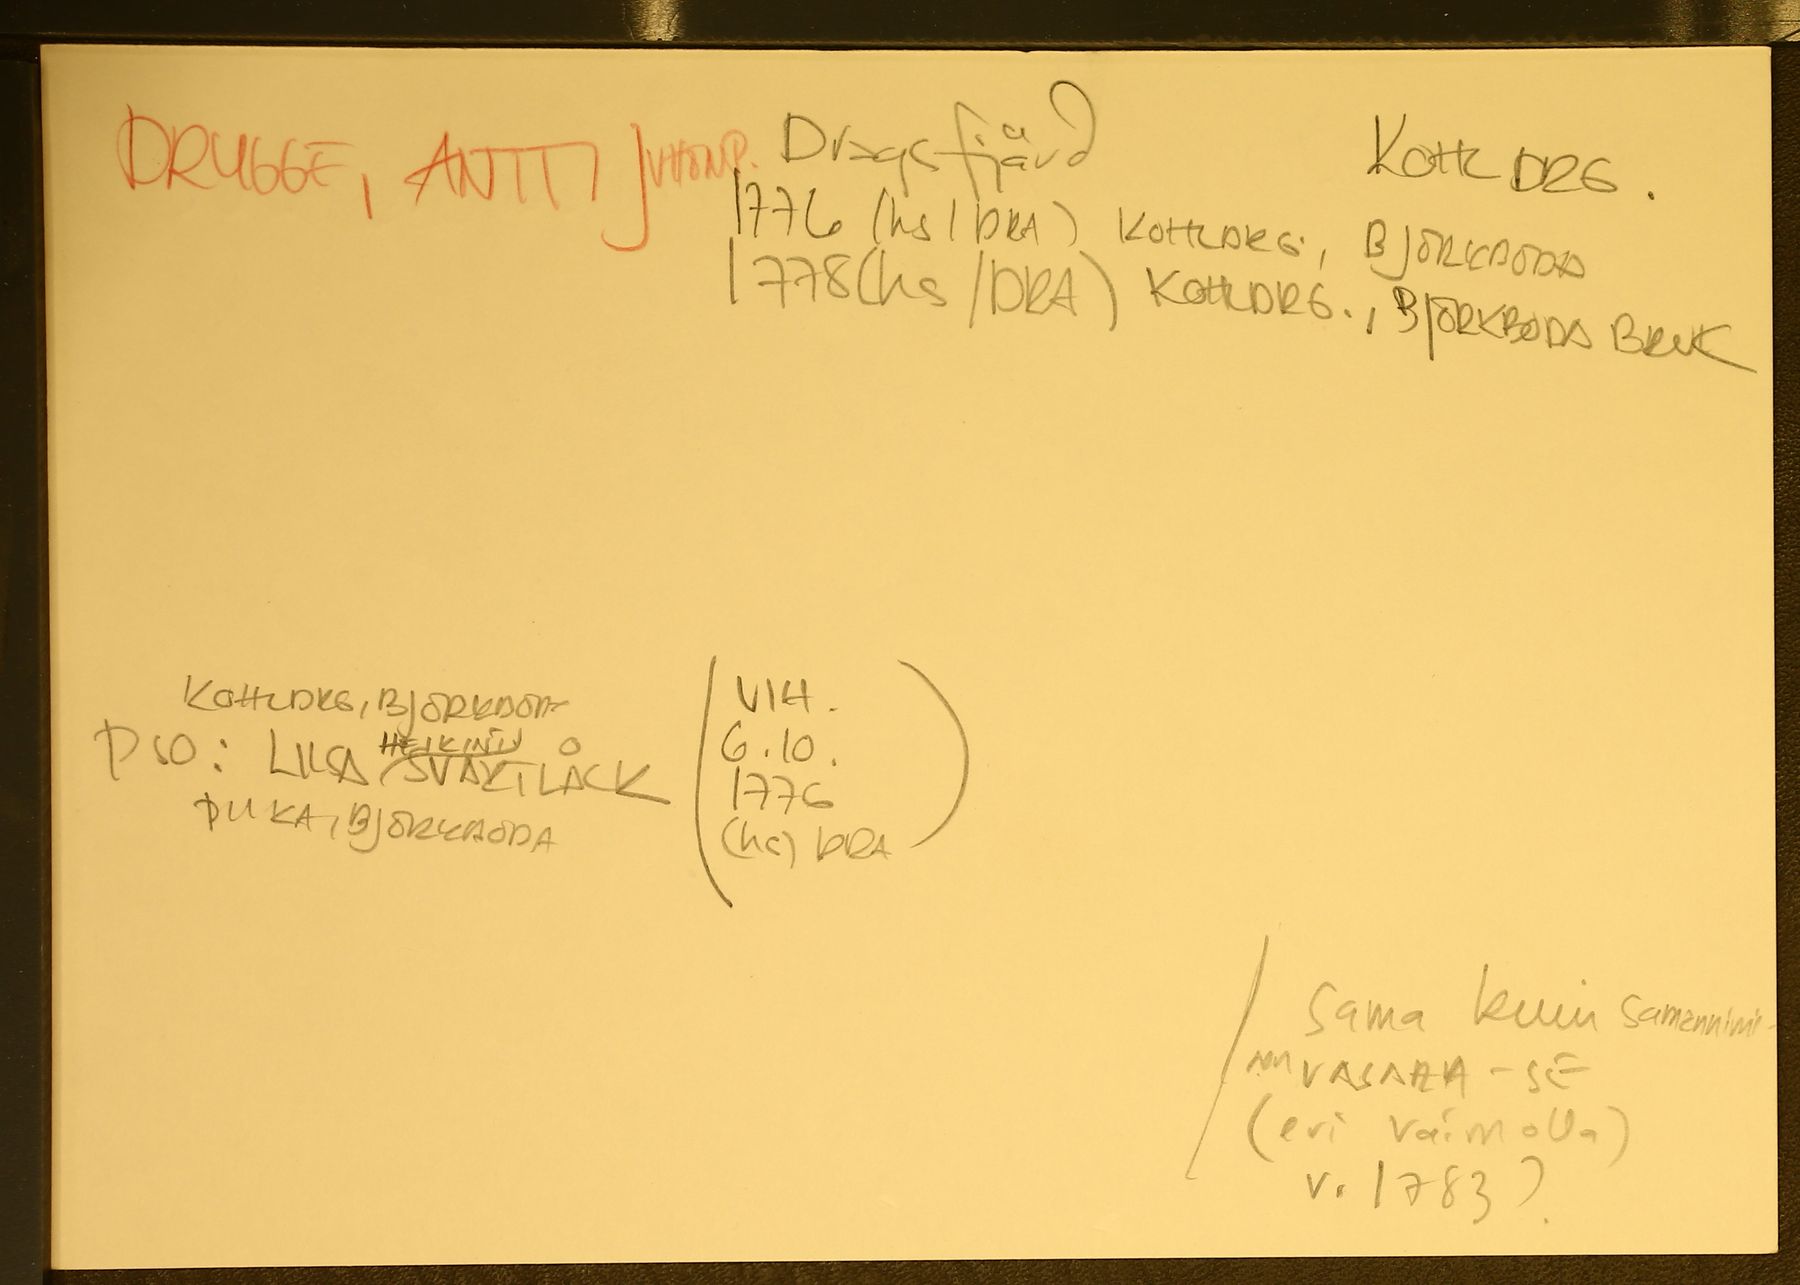 DRUGGE, ANTTI JUHONP. Dragsfjärd KOHLDRG.
1776 (hs / DRA) KOHLDRG., BJÖRKBODA
1778 (hs / DRA) KOHLDRG., BJÖRKBODA BRUK
KOHLDRG, BJÖRKBODA
PSO: LIISA HEIKINTJ SVARTLÅCK
PIIKA, BJÖRKBODA
(VIH.
6.10.
1776
(hs) DRA)
/ sama kuin samannimi-
nen VASARA-SE
(eri vaimolla)
v. 1783?